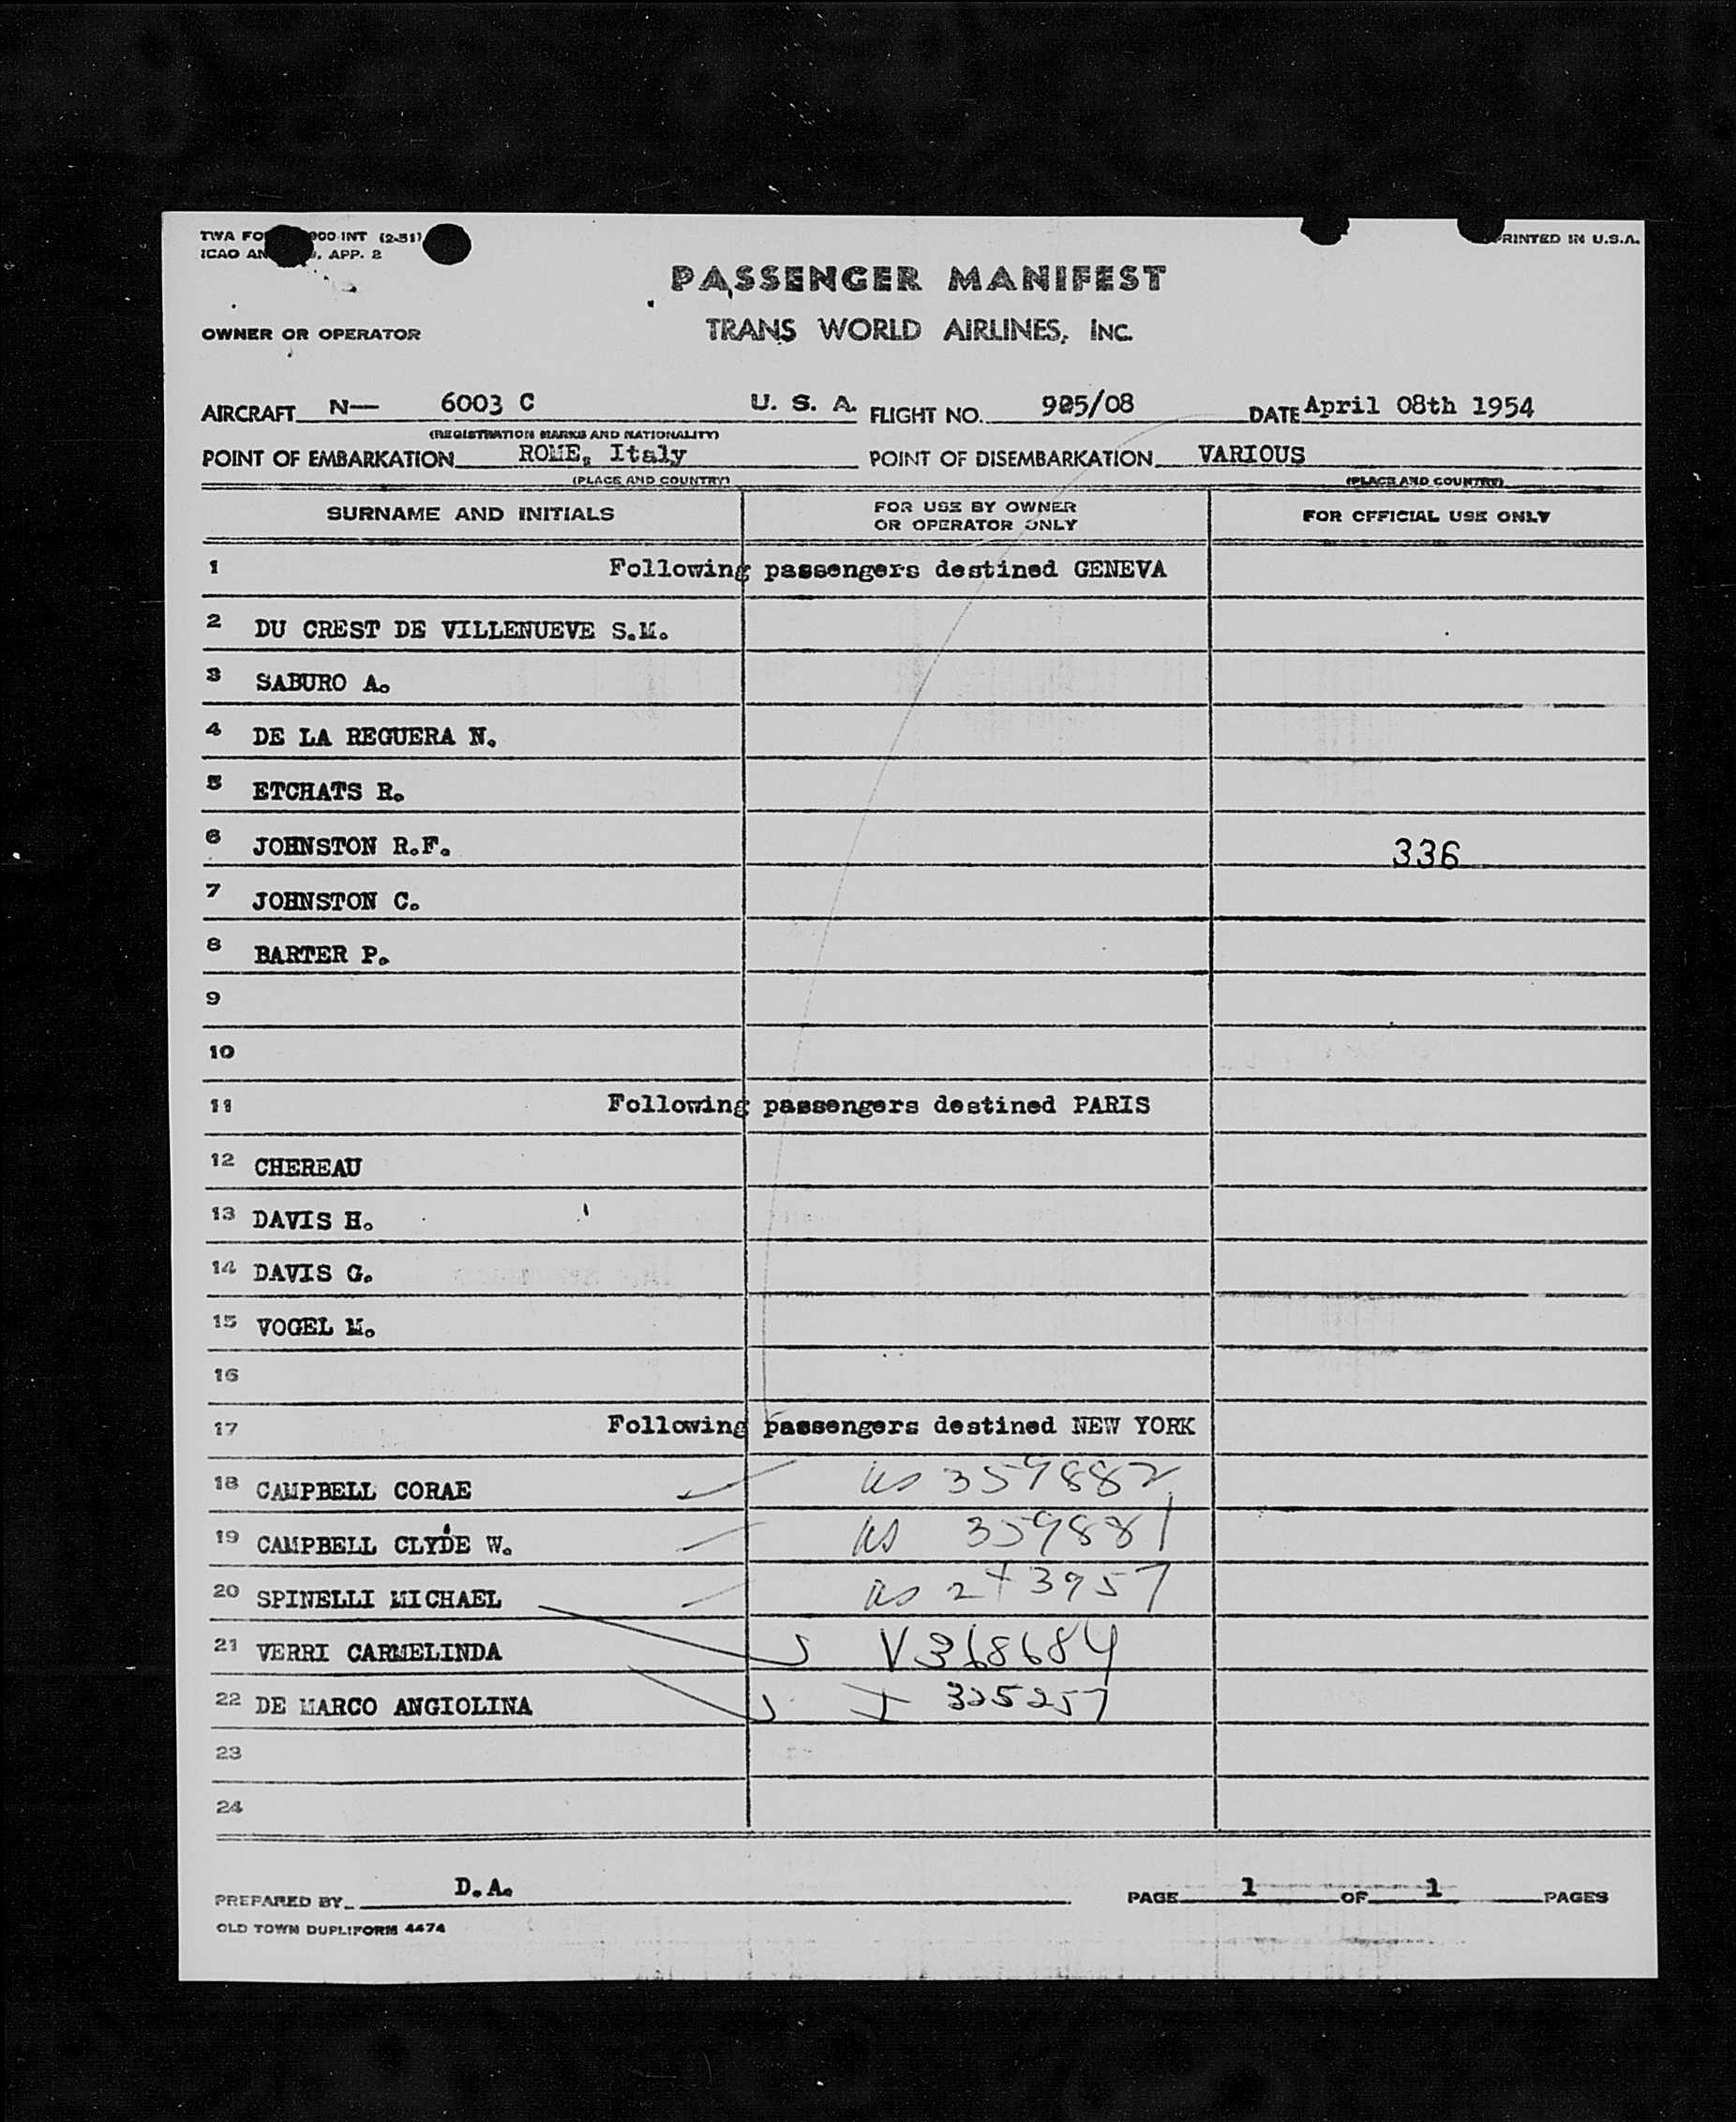 TWA FO 900-INT (2-51)
ICAO AN 9, APP. 2
PRINTED IN U.S.A.
PASSENGER MANIFEST
OWNER OR OPERATOR
TRANS WORLD AIRLINES, INC.
AIRCRAFT N— 6003 C U. S. A. FLIGHT NO. 925/08 DATE April 08th 1954
(REGISTRATION MARKS AND NATIONALITY)
POINT OF EMBARKATION ROME, Italy POINT OF DISEMBARKATION VARIOUS
(PLACE AND COUNTRY) (PLACE AND COUNTRY)
SURNAME AND INITIALS
FOR USE BY OWNER
OR OPERATOR ONLY
FOR OFFICIAL USE ONLY
1 Following passengers destined GENEVA
2 DU CREST DE VILLENUEVE S.M.
3 SABURO A.
4 DE LA REGUERA N.
5 ETCHATS R.
6 JOHNSTON R.F. 336
7 JOHNSTON C.
8 BARTER P.
9
10
11 Following passengers destined PARIS
12 CHEREAU
13 DAVIS H.
14 DAVIS G.
15 VOGEL M.
16
17 Following passengers destined NEW YORK
18 CAMPBELL CORAE US 359882
19 CAMPBELL CLYDE W. US 359881
20 SPINELLI MICHAEL US
21 VERRI CARMELINDA V 368684
22 DE MARCO ANGIOLINA I 325257
23
24
PREPARED BY D.A. PAGE 1 OF 1 PAGES
OLD TOWN DUPLIFORM 4474